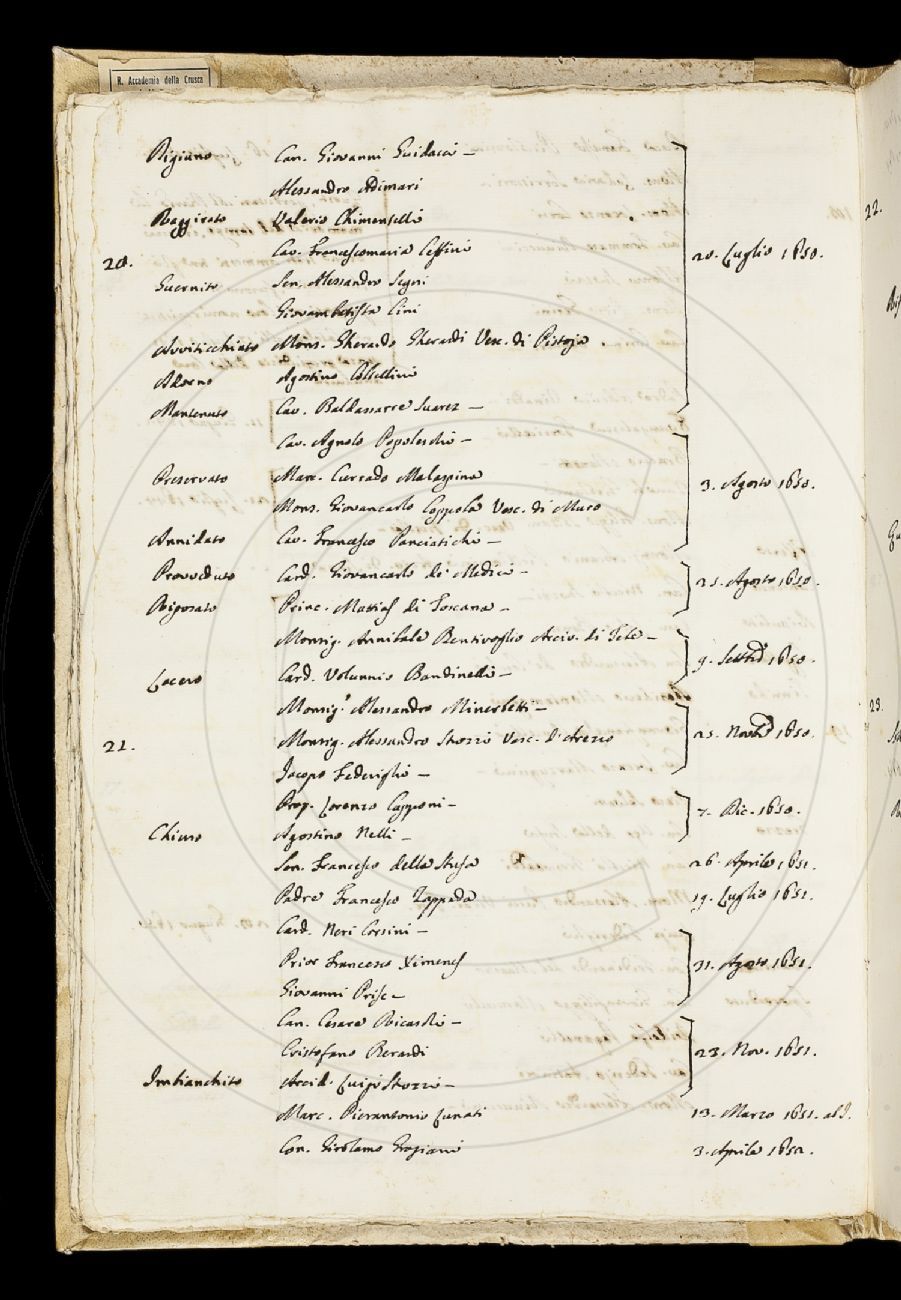 R. Accademia della Crusca
Rigiuno Can. Giovanni Guidacci –
Alessandro Adimari
Raggirato Valerio Chimentelli
20. Cav. Francescomaria Ceffini
Guernito Sen. Alessandro Segni
Giovambatista Cini
Avviticchiato Mons. Gherardo Gherardi Vesc. di Pistoja.
Adorno Agostino Coltellini
Mantenuto Cav. Baldassarre Suarez – 20. Luglio 1650.
Cav. Agnolo Popoleschi –
Preservato Marc. Currado Malaspina
Mons. Giovancarlo Coppola Vesc. di Muro
Annidato Cav. Francesco Panciatichi – 3. Agosto 1650.
Provveduto Card. Giovancarlo de Medici –
Riposato Princ. Mattias di Toscana – 25. Agosto 1650.
Monsig. Annibale Bentivoglio Arciv. di Tebe –
Lacero Card. Volunnio Bandinelli – 9. Settbre 1650.
Monsig.r Alessandro Minerbetti –
21. Monsig. Alessandro Strozzi Vesc. d'Arezzo
Jacopo Federighi – 25. Novbre 1650.
Prop. Lorenzo Capponi –
Chiuso Agostino Nelli – 7. Dic. 1650.
Sen. Francesco della Stufa 26. Aprile 1651.
Padre Francesco Zappada 19. Luglio 1651.
Card. Neri Corsini –
Prior Francesco Ximenes
Giovanni Price – 31. Agosto 1651.
Can. Cesare Ricasoli –
Cristofano Berardi
Imbianchito Arcid. Luigi Strozzi – 23. Nov. 1651.
Marc. Pierantonio Lunati 13. Marzo 1651. ab I.
Con. Girolamo Graziani 3. Aprile 1652.
22.
23.